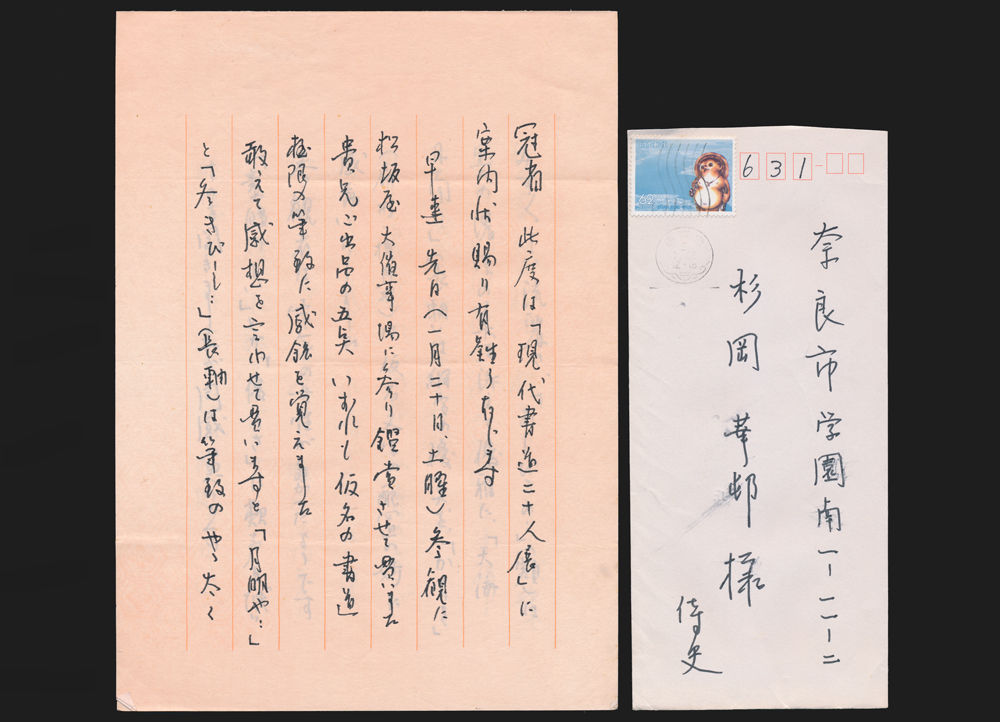 冠省 此度は「現代書道二十人展」に
案内状賜り有難う存じます
早速 先日(一月二十日、土曜)参観に
松坂屋大催事場に参り鑑賞させて貰いました
貴兄ご出品の五点 いずれも仮名の書道
極限の筆致に感銘を覚えました
敢えて感想を言わせて貰いますと「月明や…」
と「冬きびし…」(長軸)は筆致のやゝ太く
62
631
奈良市学園南一ー一一ー二
杉岡華邨様
侍史